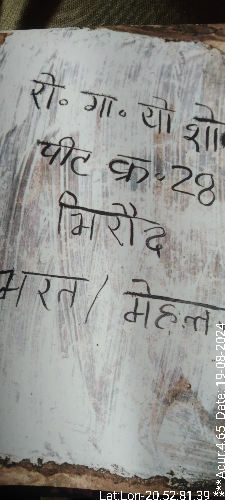 रो. गा. यो शो
पीट क्र. 28
भिरौद
भरत / मेहत्त
Lat:Lon-20.52:81.39 ***
***Acur:4.65 Date: 19-08-2024